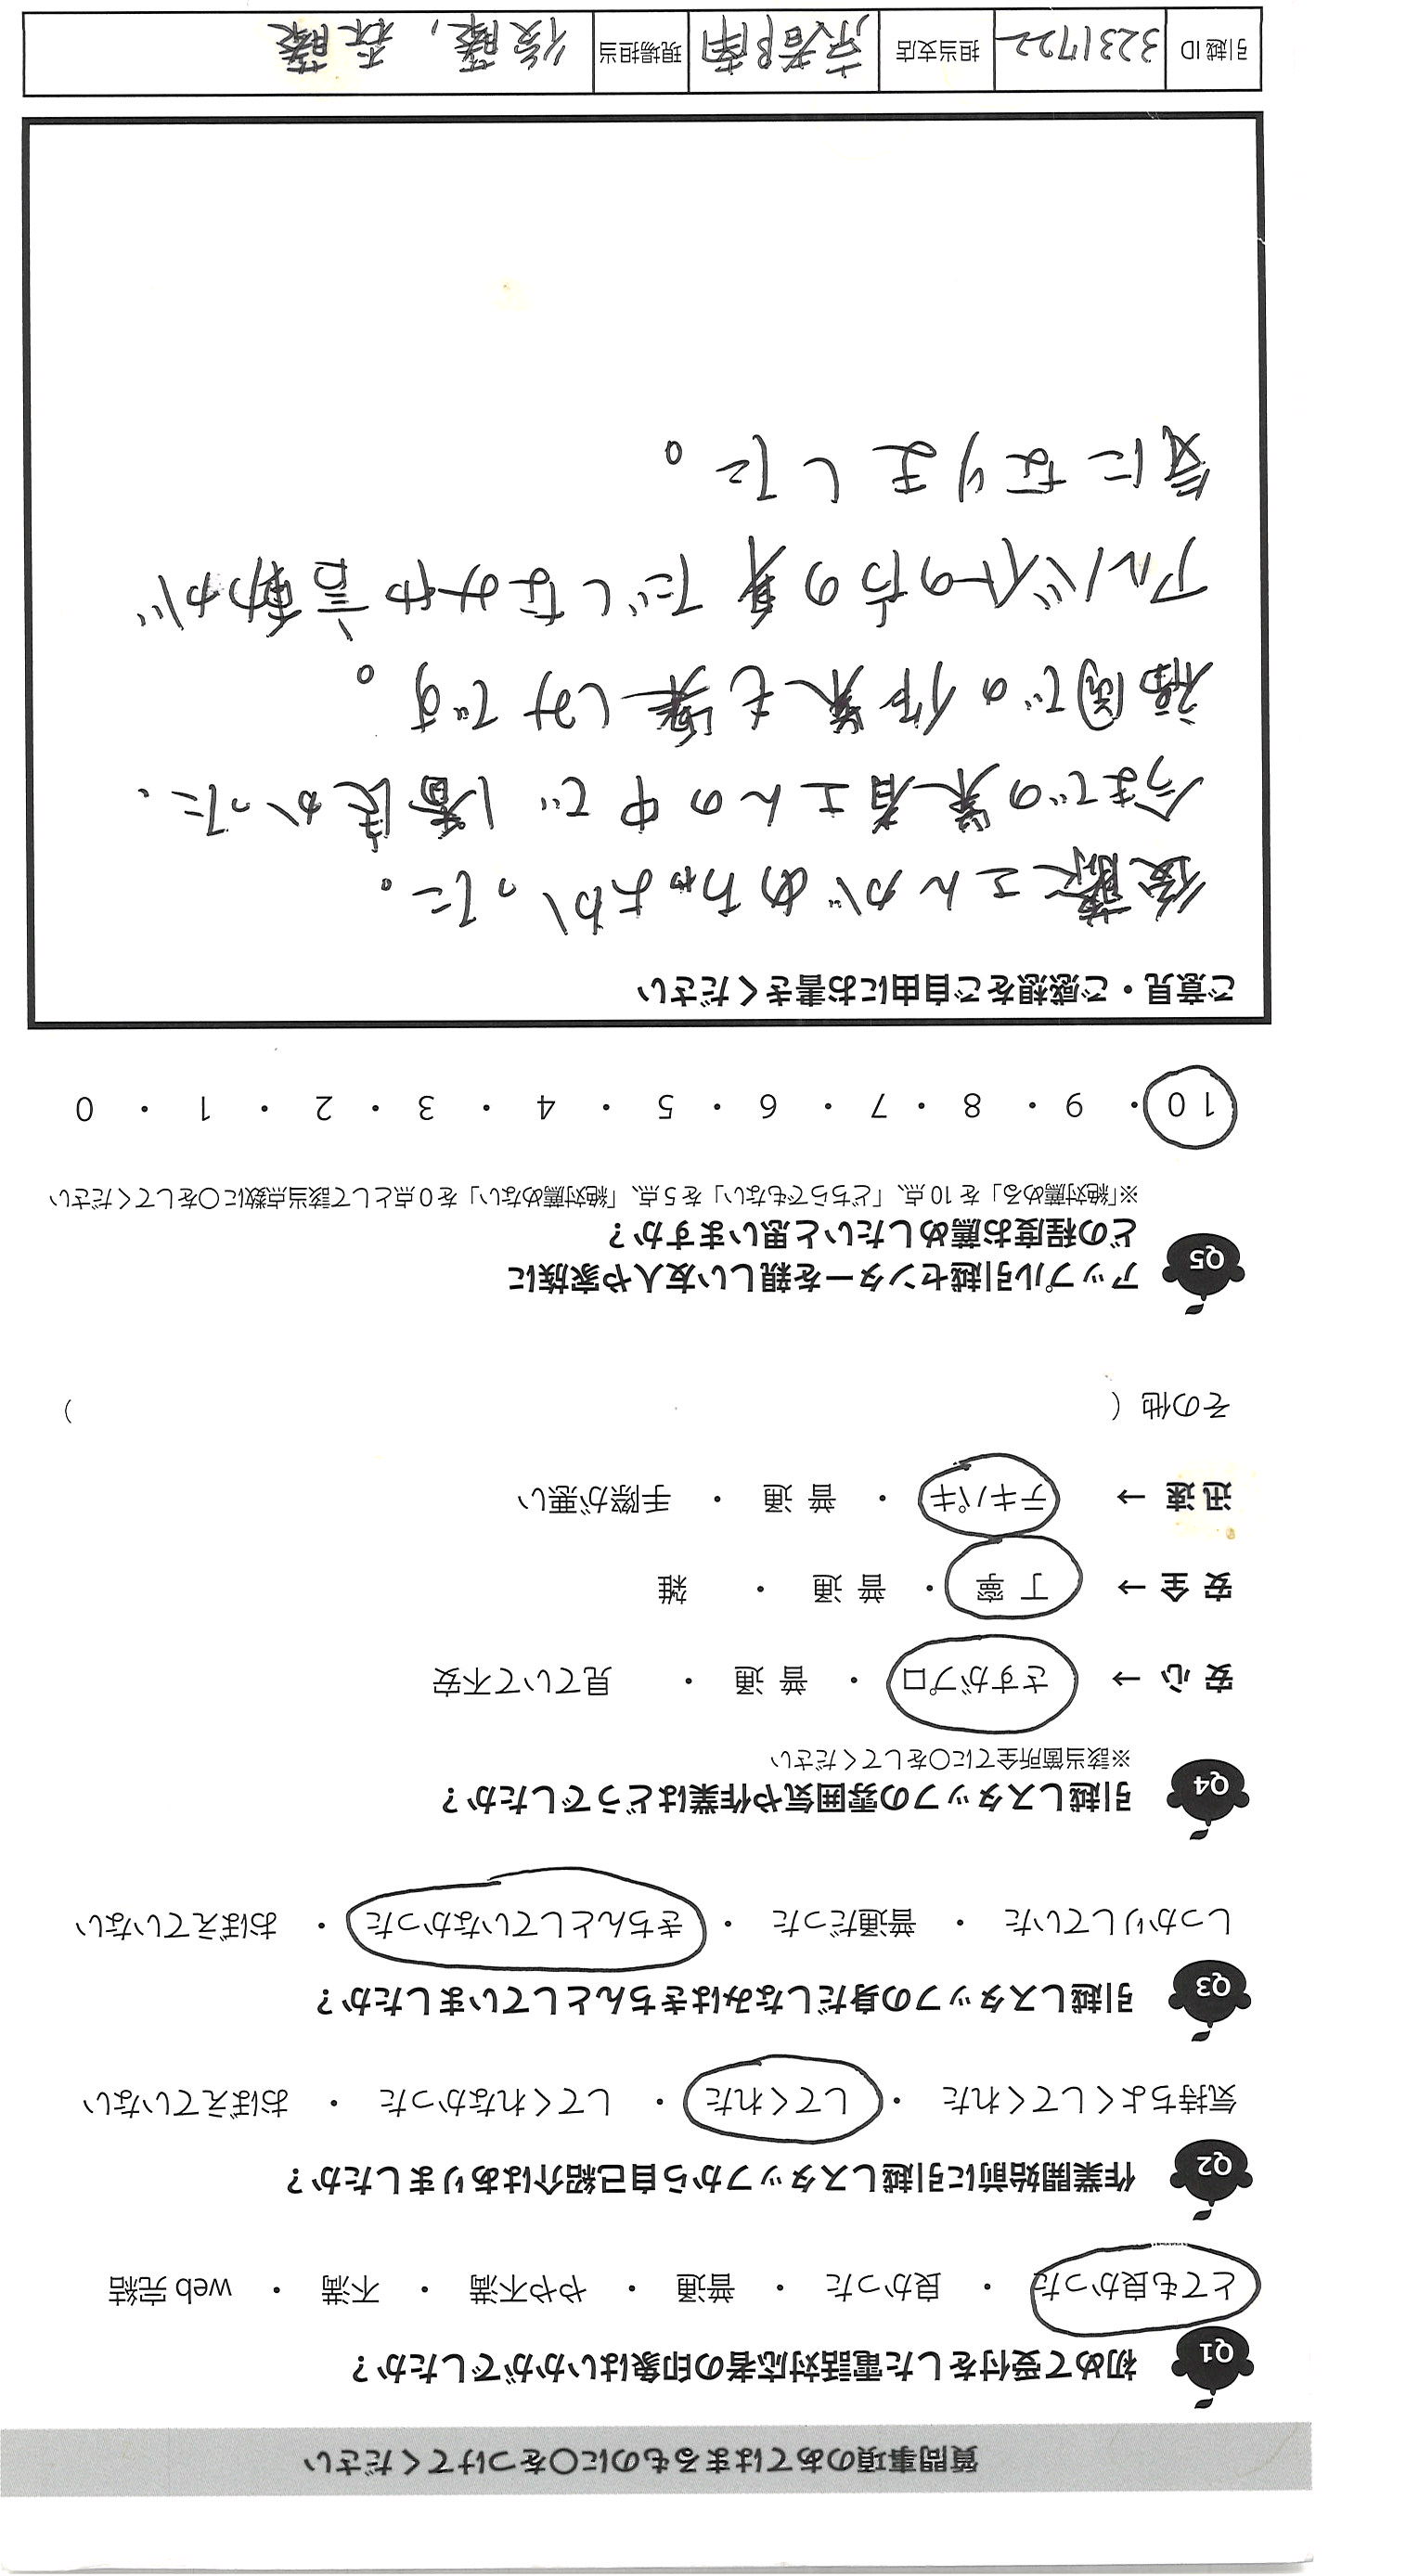 質問事項のあてはまるものに○をつけてください
Q1 初めて受付をした電話対応者の印象はいかがでしたか？
とても良かった ・ 良かった ・ 普通 ・ やや不満 ・ 不満 ・ web 完結
Q2 作業開始前に引越しスタッフから自己紹介はありましたか？
気持ちよくしてくれた ・ してくれた ・ してくれなかった ・ おぼえていない
Q3 引越しスタッフの身だしなみはきちんとしていましたか？
しっかりしていた ・ 普通だった ・ きちんとしていなかった ・ おぼえていない
Q4 引越しスタッフの雰囲気や作業はどうでしたか？
※該当箇所全てに○をしてください
安心 → さすがプロ ・ 普通 ・ 見ていて不安
安全 → 丁寧 ・ 普通 ・ 雑
迅速 → テキパキ ・ 普通 ・ 手際が悪い
その他（ ）
Q5 アップル引越センターを親しい友人や家族に
どの程度お薦めしたいと思いますか？
※「絶対薦める」を 10 点、「どちらでもない」を 5 点、「絶対薦めない」を 0 点として該当点数に○をしてください
10 ・ 9 ・ 8 ・ 7 ・ 6 ・ 5 ・ 4 ・ 3 ・ 2 ・ 1 ・ 0
ご意見・ご感想をご自由にお書きください
後藤さんがめちゃよかった。
今までの業者さんの中で1番良かった、
福岡での作業も楽しみです。
アルバイトの方の身だしなみや言動が
気になりました。
引越 ID 3231722 担当支店 京都南 現場担当 後藤, 森藤